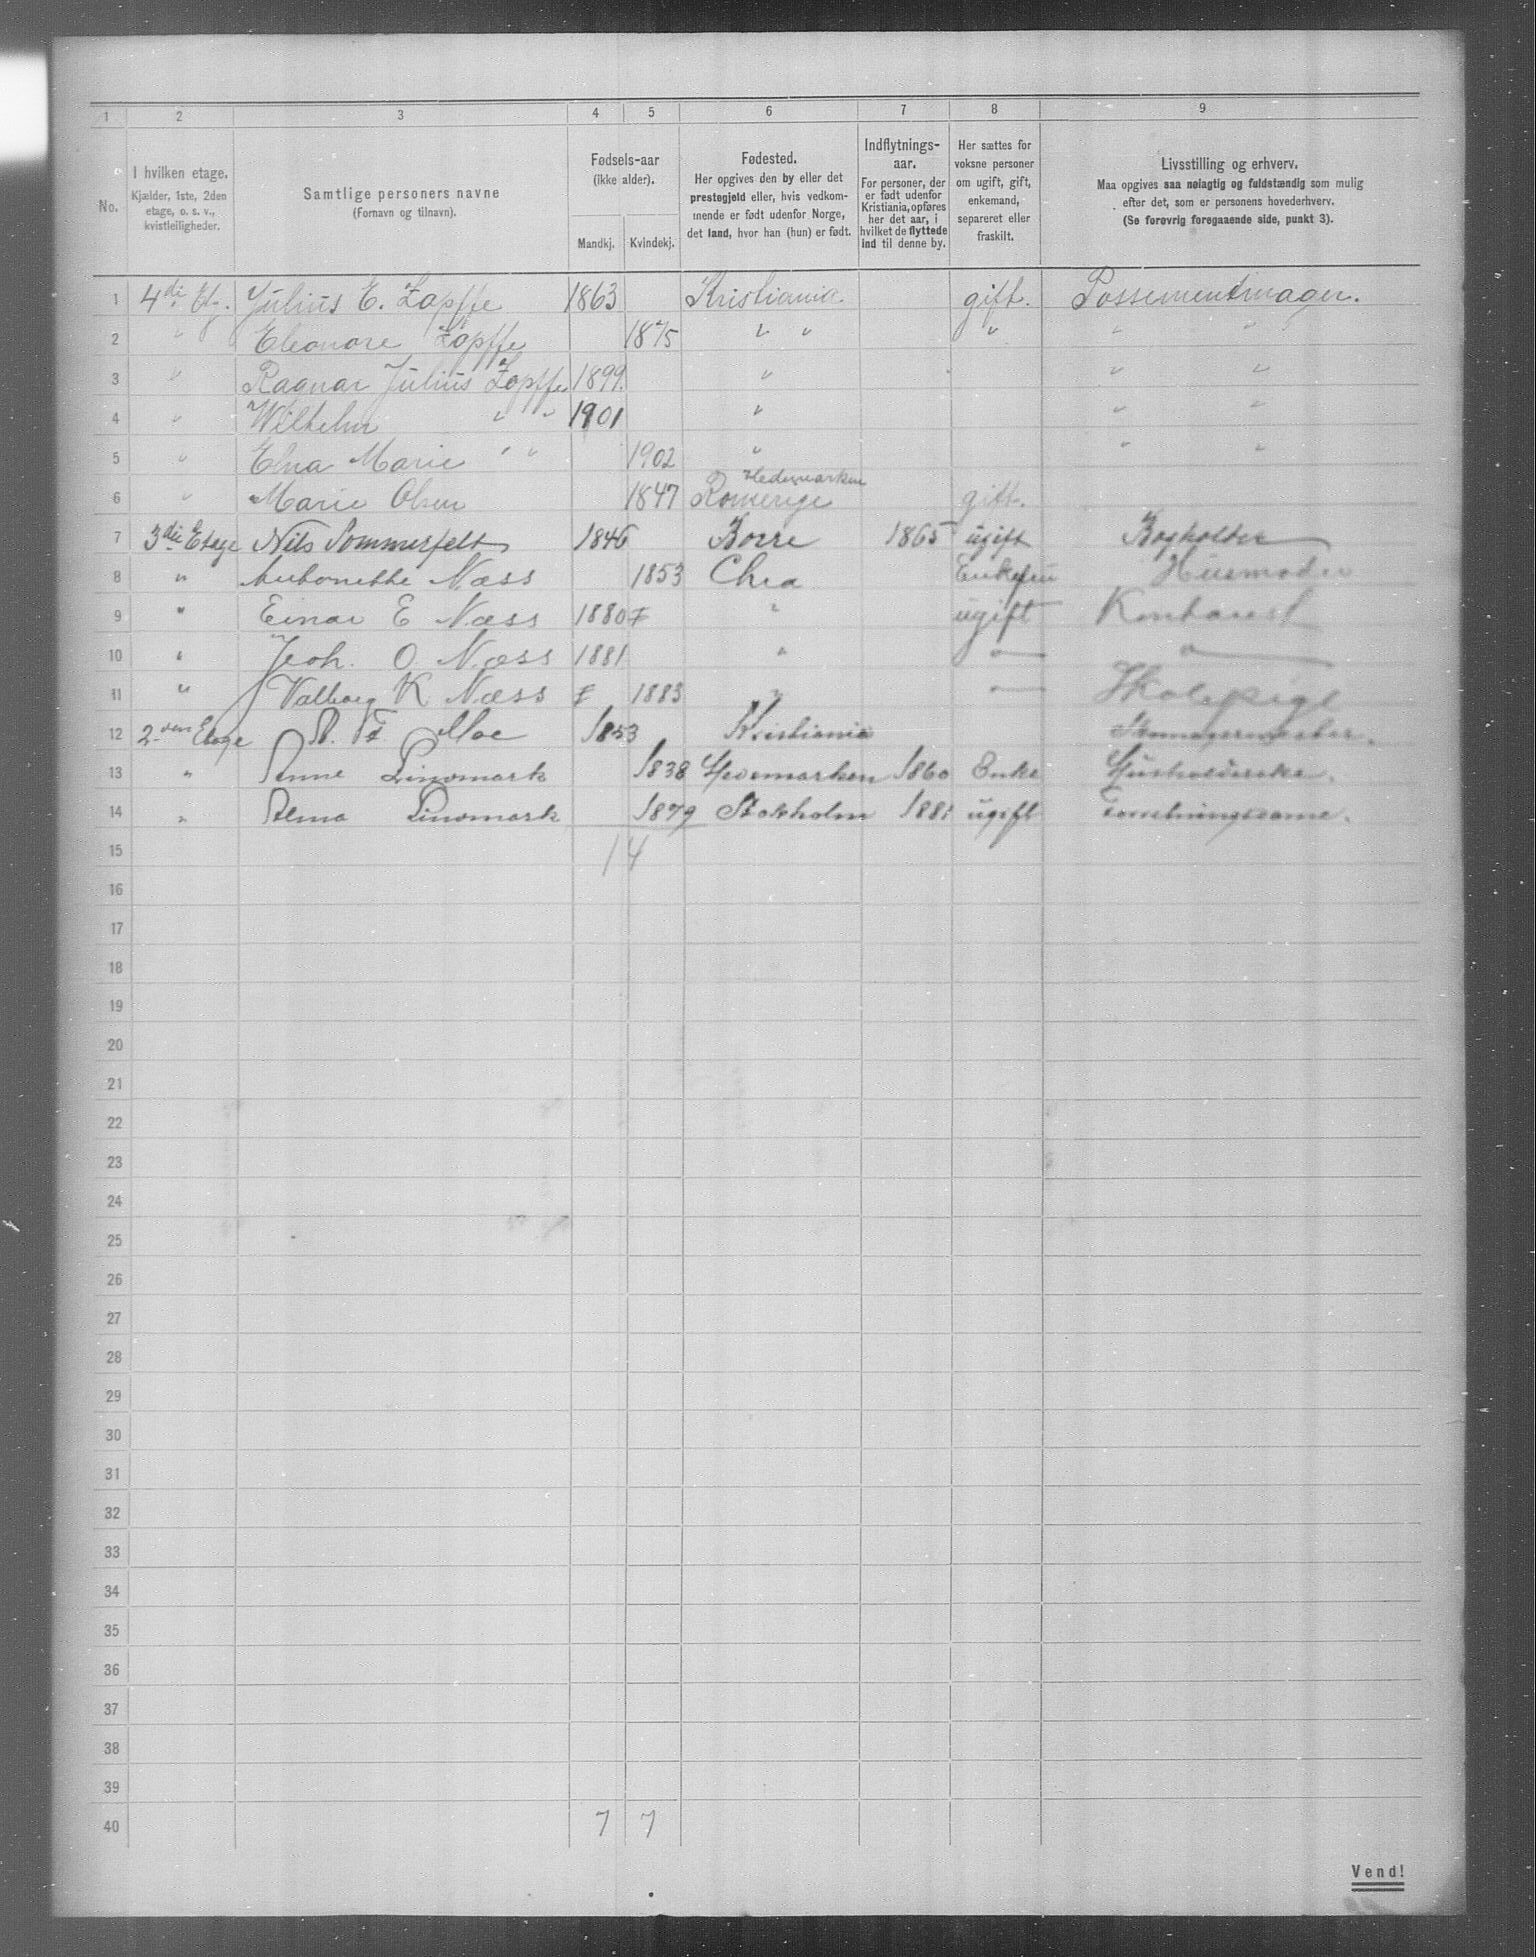 1 2 3 4 5 6 7 8 9
No. I hvilken etage. Kjælder, 1ste, 2den etage, o. s. v., kvistleiligheder. Samtlige personers navne (Fornavn og tilnavn). Fødsels-aar (ikke alder). Mandkj. Kvindekj. Fødested. Her opgives den by eller det prestegjeld eller, hvis vedkommende er født udenfor Norge, det land, hvor han (hun) er født. Indflytnings-aar. For personer, der er født udenfor Kristiania, opføres her det aar, i hvilket de flyttede ind til denne by. Her sættes for voksne personer om ugift, gift, enkemand, separeret eller fraskilt. Livsstilling og erhverv. Maa opgives saa nøiagtig og fuldstændig som mulig efter det, som er personens hovederhverv. (Se forøvrig foregaaende side, punkt 3).
1 4di Etg. Julius E. Zapffe 1863 Kristiania gift. Possementmager.
2 " Eleonore Zapffe 1875 " " " " "
3 " Ragnar Julius Zapffe 1899. " " "
4 " Wilhelm " " 1901 " " "
5 " Elna Marie " " 1902 " " "
6 " Marie Olsen 1847 Romerige Hedemarken gift.
7 3die Etage Nils Sommerfelt 1846 Borre 1865 ugift Bogholder
8 " Antonette Næss 1853 Chra Enkefru Husmoder
9 " Einar E Næss 1880 " ugift Kontorist
10 " Joh. O Næss 1881 " " "
11 " Valborg K Næss 1883 " " Skolepige
12 2den Etage Moe 1853 Kristiania
13 " Anne Lindmark 1838 Hedemarken 1860 Enke Husholderske.
14 " Alma Lindmark 1879 Stokholm 1881 ugift Forretningsdame.
15 14
16
17
18
19
20
21
22
23
24
25
26
27
28
29
30
31
32
33
34
35
36
37
38
39
40 7 7
Vend!